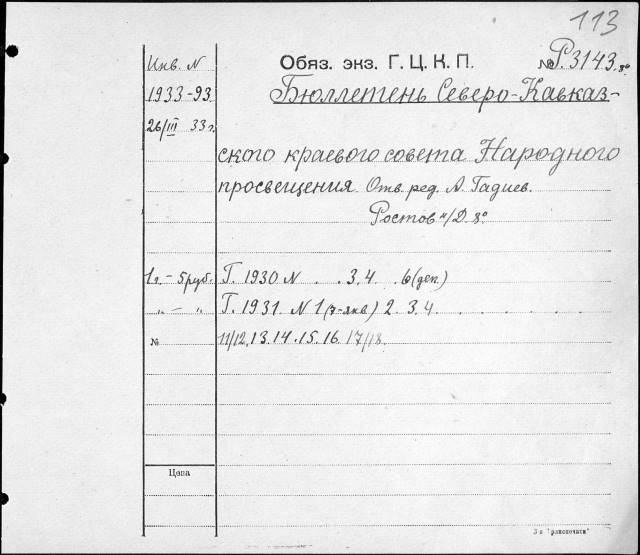 113
Инв. N Обяз. экз. Г. Ц. К. П. № Р.3143 8°
1933-93 Бюллетень Северо-Кавказ-
26/III 33 г.
ского краевого совета Народного
просвещения. Отв. ред. А. Гадиев.
Ростов н/Д. 8°
1 г. – 5 руб. Г. 1930 N . . 3.4 . 6 (дек)
„ – „ Г. 1931. N 1 (7-янв) 2. 3.4.
№ 11/12, 13. 14. 15. 16. 17/18.
Цена